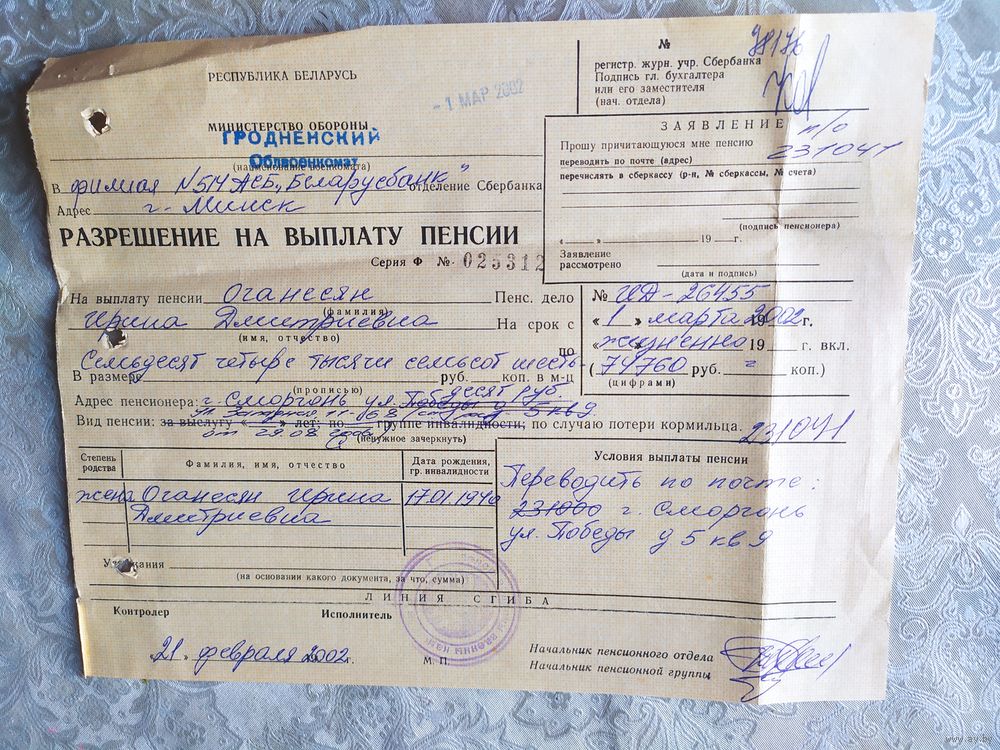 РЕСПУБЛИКА БЕЛАРУСЬ
- 1 МАР 2002
МИНИСТЕРСТВО ОБОРОНЫ
ГРОДНЕНСКИЙ
Облвоенкомат
(наименование военкомата)
В филиал N 514 АСБ „Беларусбанк" отделение Сбербанка
Адрес г. Минск
РАЗРЕШЕНИЕ НА ВЫПЛАТУ ПЕНСИИ
Серия Ф № 025312
№ 98176
регистр. журн. учр. Сбербанка
Подпись гл. бухгалтера
или его заместителя
(нач. отдела)
ЗАЯВЛЕНИЕ п/о
Прошу причитающуюся мне пенсию 231041
переводить по почте (адрес)
перечислять в сберкассу (р-н, № сберкассы, № счета)
(подпись пенсионера)
« » 19 г.
Заявление
рассмотрено
(дата и подпись)
На выплату пенсии Оганесян Пенс. дело № ИД-26455
(фамилия)
Ирина Дмитриевна На срок с «1» марта 2002 г.
(имя, отчество)
по «пожизненно 19 г. вкл.
Семьдесят четыре тысячи семьсот шесть-
В размере руб. коп. в м-ц (74760 руб. = коп.)
(прописью) (цифрами)
десят руб.
Адрес пенсионера: г. Сморгонь ул. Победы д 5 кв 9
ул. 11-68
Вид пенсии: за выслугу « » лет; по группе инвалидности; по случаю потери кормильца. 231041
от 29.08
(ненужное зачеркнуть)
Степень родства Фамилия, имя, отчество Дата рождения, гр. инвалидности
жена Оганесян Ирина 17.01.1940
Дмитриевна
Условия выплаты пенсии
Переводить по почте:
231000 г. Сморгонь
ул. Победы д 5 кв 9
Указания
(на основании какого документа, за что, сумма)
ЛИНИЯ СГИБА
Контролер Исполнитель
„21" февраля 2002г.
М. П.
Начальник пенсионного отдела
Начальник пенсионной группы
www.ay.by